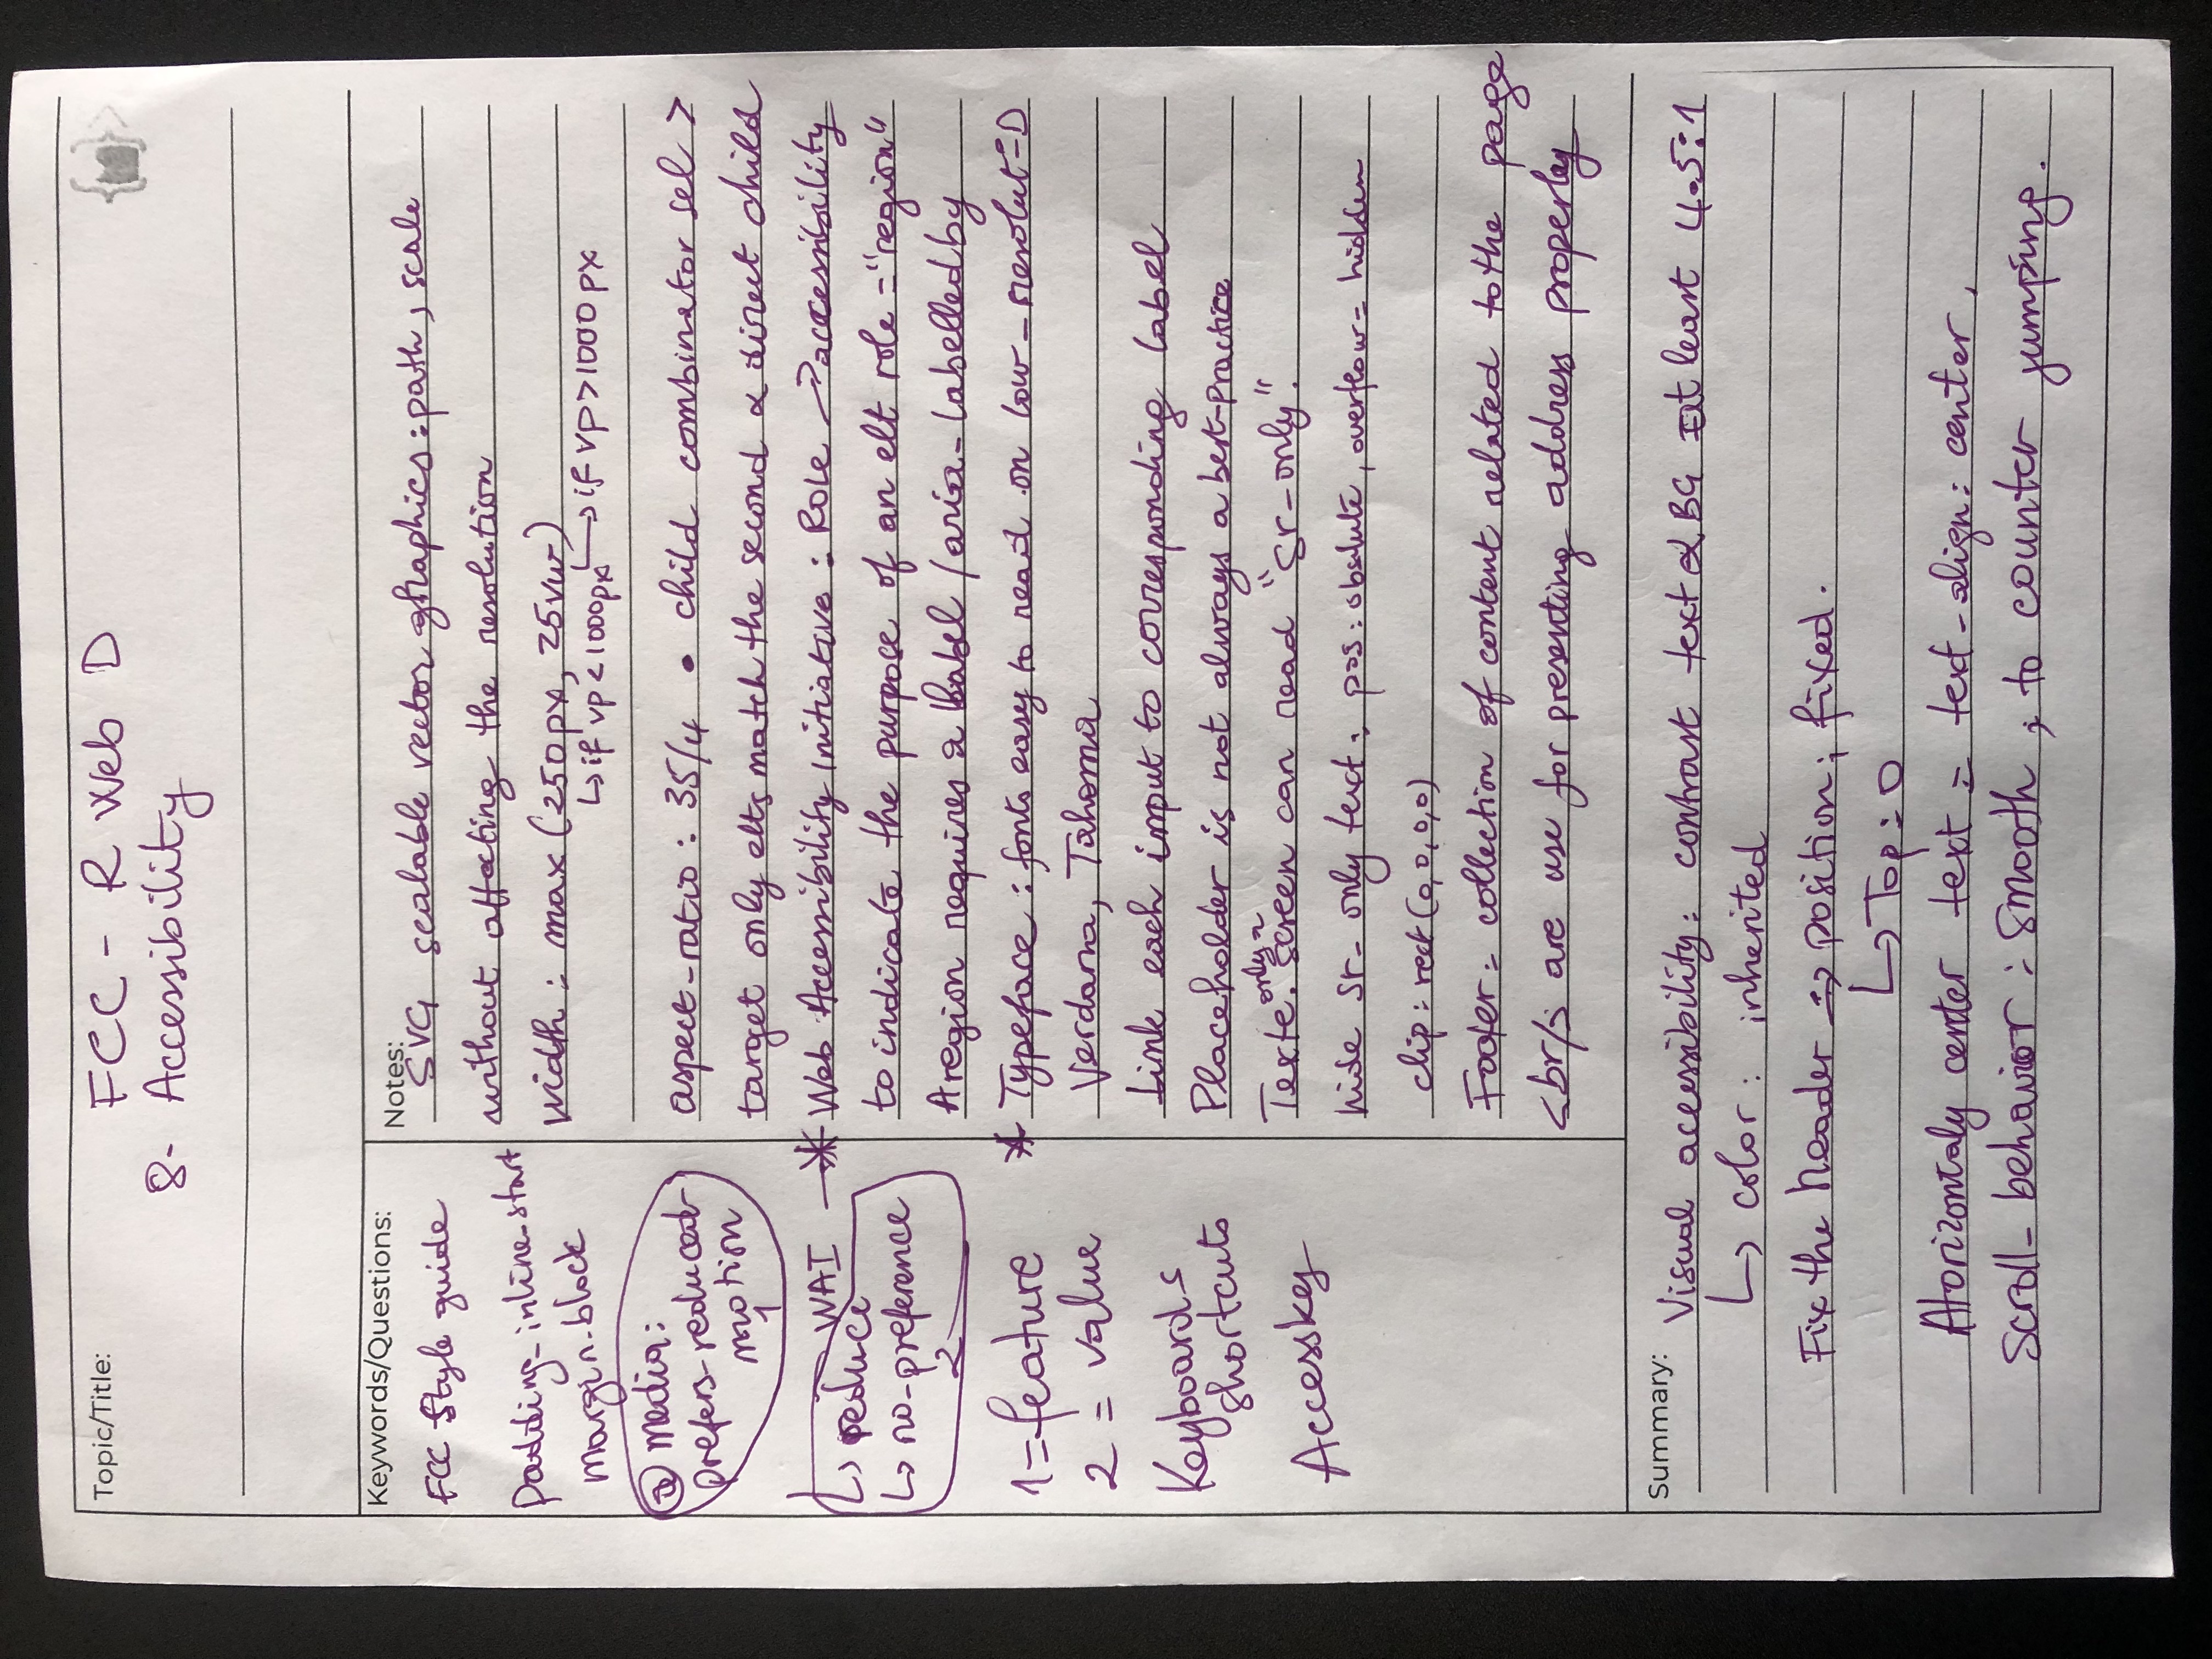 Topic/Title:
FCC - R Web D
8- Accessibility
Keywords/Questions:
FCC Style guide
Padding-inline-start
margin-block
@ media:
prefers-reduced-
motion
1
WAI
↳ reduce
↳ no-preference
2
1=feature
2 = value
Keyboards
shortcuts
Accesskey
Notes:
SVG scalable vector graphics: path, scale
without affecting the resolution
width: max (250px, 25vw)
↳ if vp < 1000px ↳ if vp > 1000px
aspect-ratio: 35/4 • child combinator sel >
target only elts match the second & direct child
* Web Accessibility Initiative: Role → accessibility
to indicate the purpose of an elt role="region"
A region requires a label / aria-labelledby
* Typeface: fonts easy to read on low-resolut° D
Verdana, Tahoma
Link each input to corresponding label
Placeholder is not always a best-practice
Texte. only a screen can read "sr-only".
hide sr-only text: pos: absolute, overflow= hidden
clip: rect (0,0,0,0)
Footer: collection of content related to the page
<br/> are use for presenting address properly
Summary:
Visual accessibility: contrast text & BG at least 4.5:1
↳ color: inherited
Fix the header ⇒ position; fixed.
↳ Top: 0
Horizontaly center text = text-align: center,
Scroll-behavior: smooth; to counter jumping.